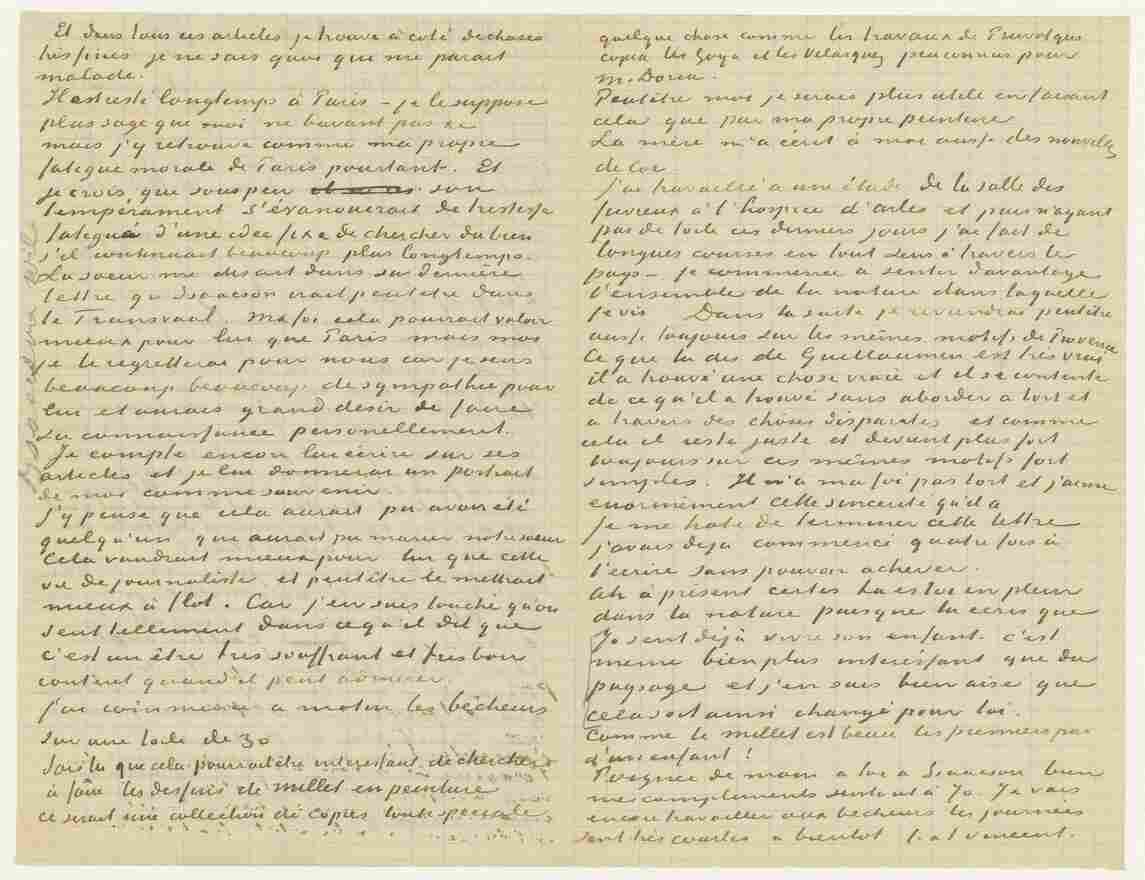 Et dans tous ces articles je trouve à coté de choses
très fines je ne sais quoi que me parait
malade.
Il est resté longtemps à Paris – je le suppose
plus sage que moi ne buvant pas &c
mais j'y retrouve comme ma propre
fatigue morale de Paris pourtant. Et
je crois que sous peu son
tempérament s'évanouirait de tristesse
fatigué d'une idee fixe de chercher du bien
s'il continuait beaucoup plus longtemps.
La soeur me disait dans sa dernière
lettre qu'Isaäcson irait peutetre dans
le Transvaal. Ma foi cela pourrait valoir
mieux pour lui que Paris mais moi
je le regretterai pour nous car je sens
beaucoup beaucoup de sympathie pour
lui et aurais grand désir de faire
sa connaissance personellement.
Je compte encore lui écrire sur ses
articles et je lui donnerai un portrait
de moi comme souvenir.
J'y pense que cela aurait pu avoir été
quelqu'un que aurait pu marier notre soeur
Cela vaudrait mieux pour lui que cette
vie de journaliste et peutêtre le mettrait
mieux à flot. Car j'en suis touché qu'on
sent tellement dans ce qu'il dit que
c'est un être très souffrant et très bon
content quand il peut admirer.
j'ai commencé a matin les bêcheurs
sur une toile de 30
Sais tu que cela pourrait être interessant de chercher
à faire les dessins de Millet en peinture
ce serait une collection de copies toute speciale
quelque chose comme les travaux de Prevot qui
copia les Goya et les Velasquez peu connus pour
M. Doria.
Peutêtre moi je serais plus utile en faisant
cela que par ma propre peinture
La mère m'a écrit à moi aussi des nouvelles
de Cor.
J'ai travaillé a une étude de la salle des
fievreux à l'hospice d'Arles et puis n'ayant
pas de toile ces derniers jours j'ai fait de
longues courses en tout sens à travers le
pays – je commence a sentir davantage
l'ensemble de la nature dans laquelle
je vis Dans la suite je reviendrai peutêtre
aussi toujours sur les mêmes motifs de Provence
Ce que tu dis de Guillaumin est très vrai
il a trouvé une chose vraie et il se contente
de ce qu'il a trouvé sans aborder à tort et
a travers des choses disparates et comme
cela il reste juste et devient plus fort
toujours sur ces mêmes motifs fort
simples. Il n'a ma foi pas tort et j'aime
enormément cette sincerité qu'il a
Je me hate de terminer cette lettre
j'avais déja commencé quatre fois à
t'ecrire sans pouvoir achever.
Ah à présent certes tu es toi en plein
dans la nature puisque tu ecris que
Jo sent déjà vivre son enfant – c'est
meme bien plus interessant que du
paysage et j'en suis bien aise que
cela soit ainsi changé pour toi.
Comme le Millet est beau les premiers pas
d'un enfant!
Poignée de main a toi a Isaäcson bien
mes compliments surtout à Jo. Je vais
encore travailler aux bêcheurs les journées
sont très courtes a bientot t. à t Vincent.